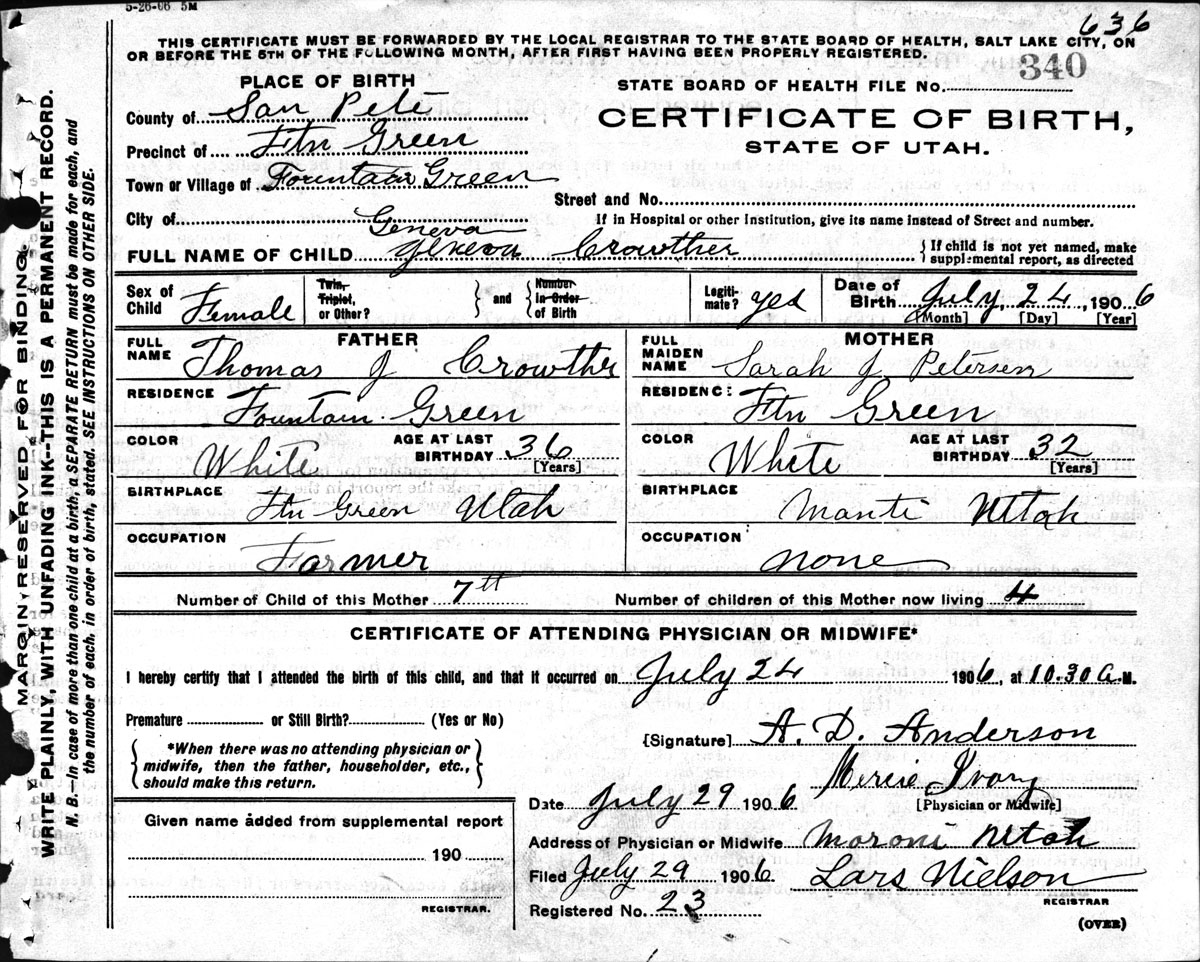 5-26-06 5M
636
THIS CERTIFICATE MUST BE FORWARDED BY THE LOCAL REGISTRAR TO THE STATE BOARD OF HEALTH, SALT LAKE CITY, ON
OR BEFORE THE 5TH OF THE FOLLOWING MONTH, AFTER FIRST HAVING BEEN PROPERLY REGISTERED.
340
PLACE OF BIRTH
STATE BOARD OF HEALTH FILE No.
County of San Pete
CERTIFICATE OF BIRTH,
Precinct of Ftn Green
STATE OF UTAH.
Town or Village of Fountain Green
Street and No.
City of
If in Hospital or other Institution, give its name instead of Street and number.
Geneva
FULL NAME OF CHILD Geneva Crowther {If child is not yet named, make
supplemental report, as directed
Sex of Child Female
Twin, Triplet, or Other? } and { Number in Order of Birth
Legiti-mate? yes
Date of Birth July, 24, 1906
[Month] [Day] [Year]
FATHER
MOTHER
FULL NAME Thomas J Crowther
FULL MAIDEN NAME Sarah J Petersen
RESIDENCE Fountain Green
RESIDENCE Ftn Green
COLOR White AGE AT LAST BIRTHDAY 36 [Years]
COLOR White AGE AT LAST BIRTHDAY 32 [Years]
BIRTHPLACE Ftn Green Utah
BIRTHPLACE Manti Utah
OCCUPATION Farmer
OCCUPATION none
Number of Child of this Mother 7th
Number of children of this Mother now living 4
CERTIFICATE OF ATTENDING PHYSICIAN OR MIDWIFE*
I hereby certify that I attended the birth of this child, and that it occurred on July 24 1906, at 10.30 a.M.
Premature or Still Birth? (Yes or No)
{*When there was no attending physician or
midwife, then the father, householder, etc.,
should make this return.}
[Signature] A. D. Anderson
Mercie Ivory
[Physician or Midwife]
Date July 29 1906
Given name added from supplemental report
190
REGISTRAR.
Address of Physician or Midwife Moroni Utah
Filed July 29 1906 Lars Nielson
REGISTRAR
Registered No. 23
(OVER)
MARGIN RESERVED FOR BINDING.
WRITE PLAINLY, WITH UNFADING INK--THIS IS A PERMANENT RECORD.
N. B.—In case of more than one child at a birth, a SEPARATE RETURN must be made for each, and
the number of each, in order of birth, stated. SEE INSTRUCTIONS ON OTHER SIDE.